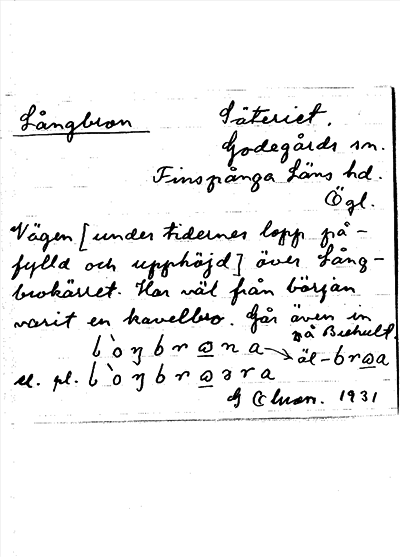 Långbron
Säteriet.
Godegårds sn.
Finspånga Läns hd.
Ögl.
Vägen [under tidernes lopp på-
fylld och upphöjd] över Lång-
brokärret. Har väl från början
varit en kavelbro. Går även in
på Biehult.
l ò ŋ b r ω n a → äl-brωa
el. pl. l ò ŋ b r ω ə r a
1931